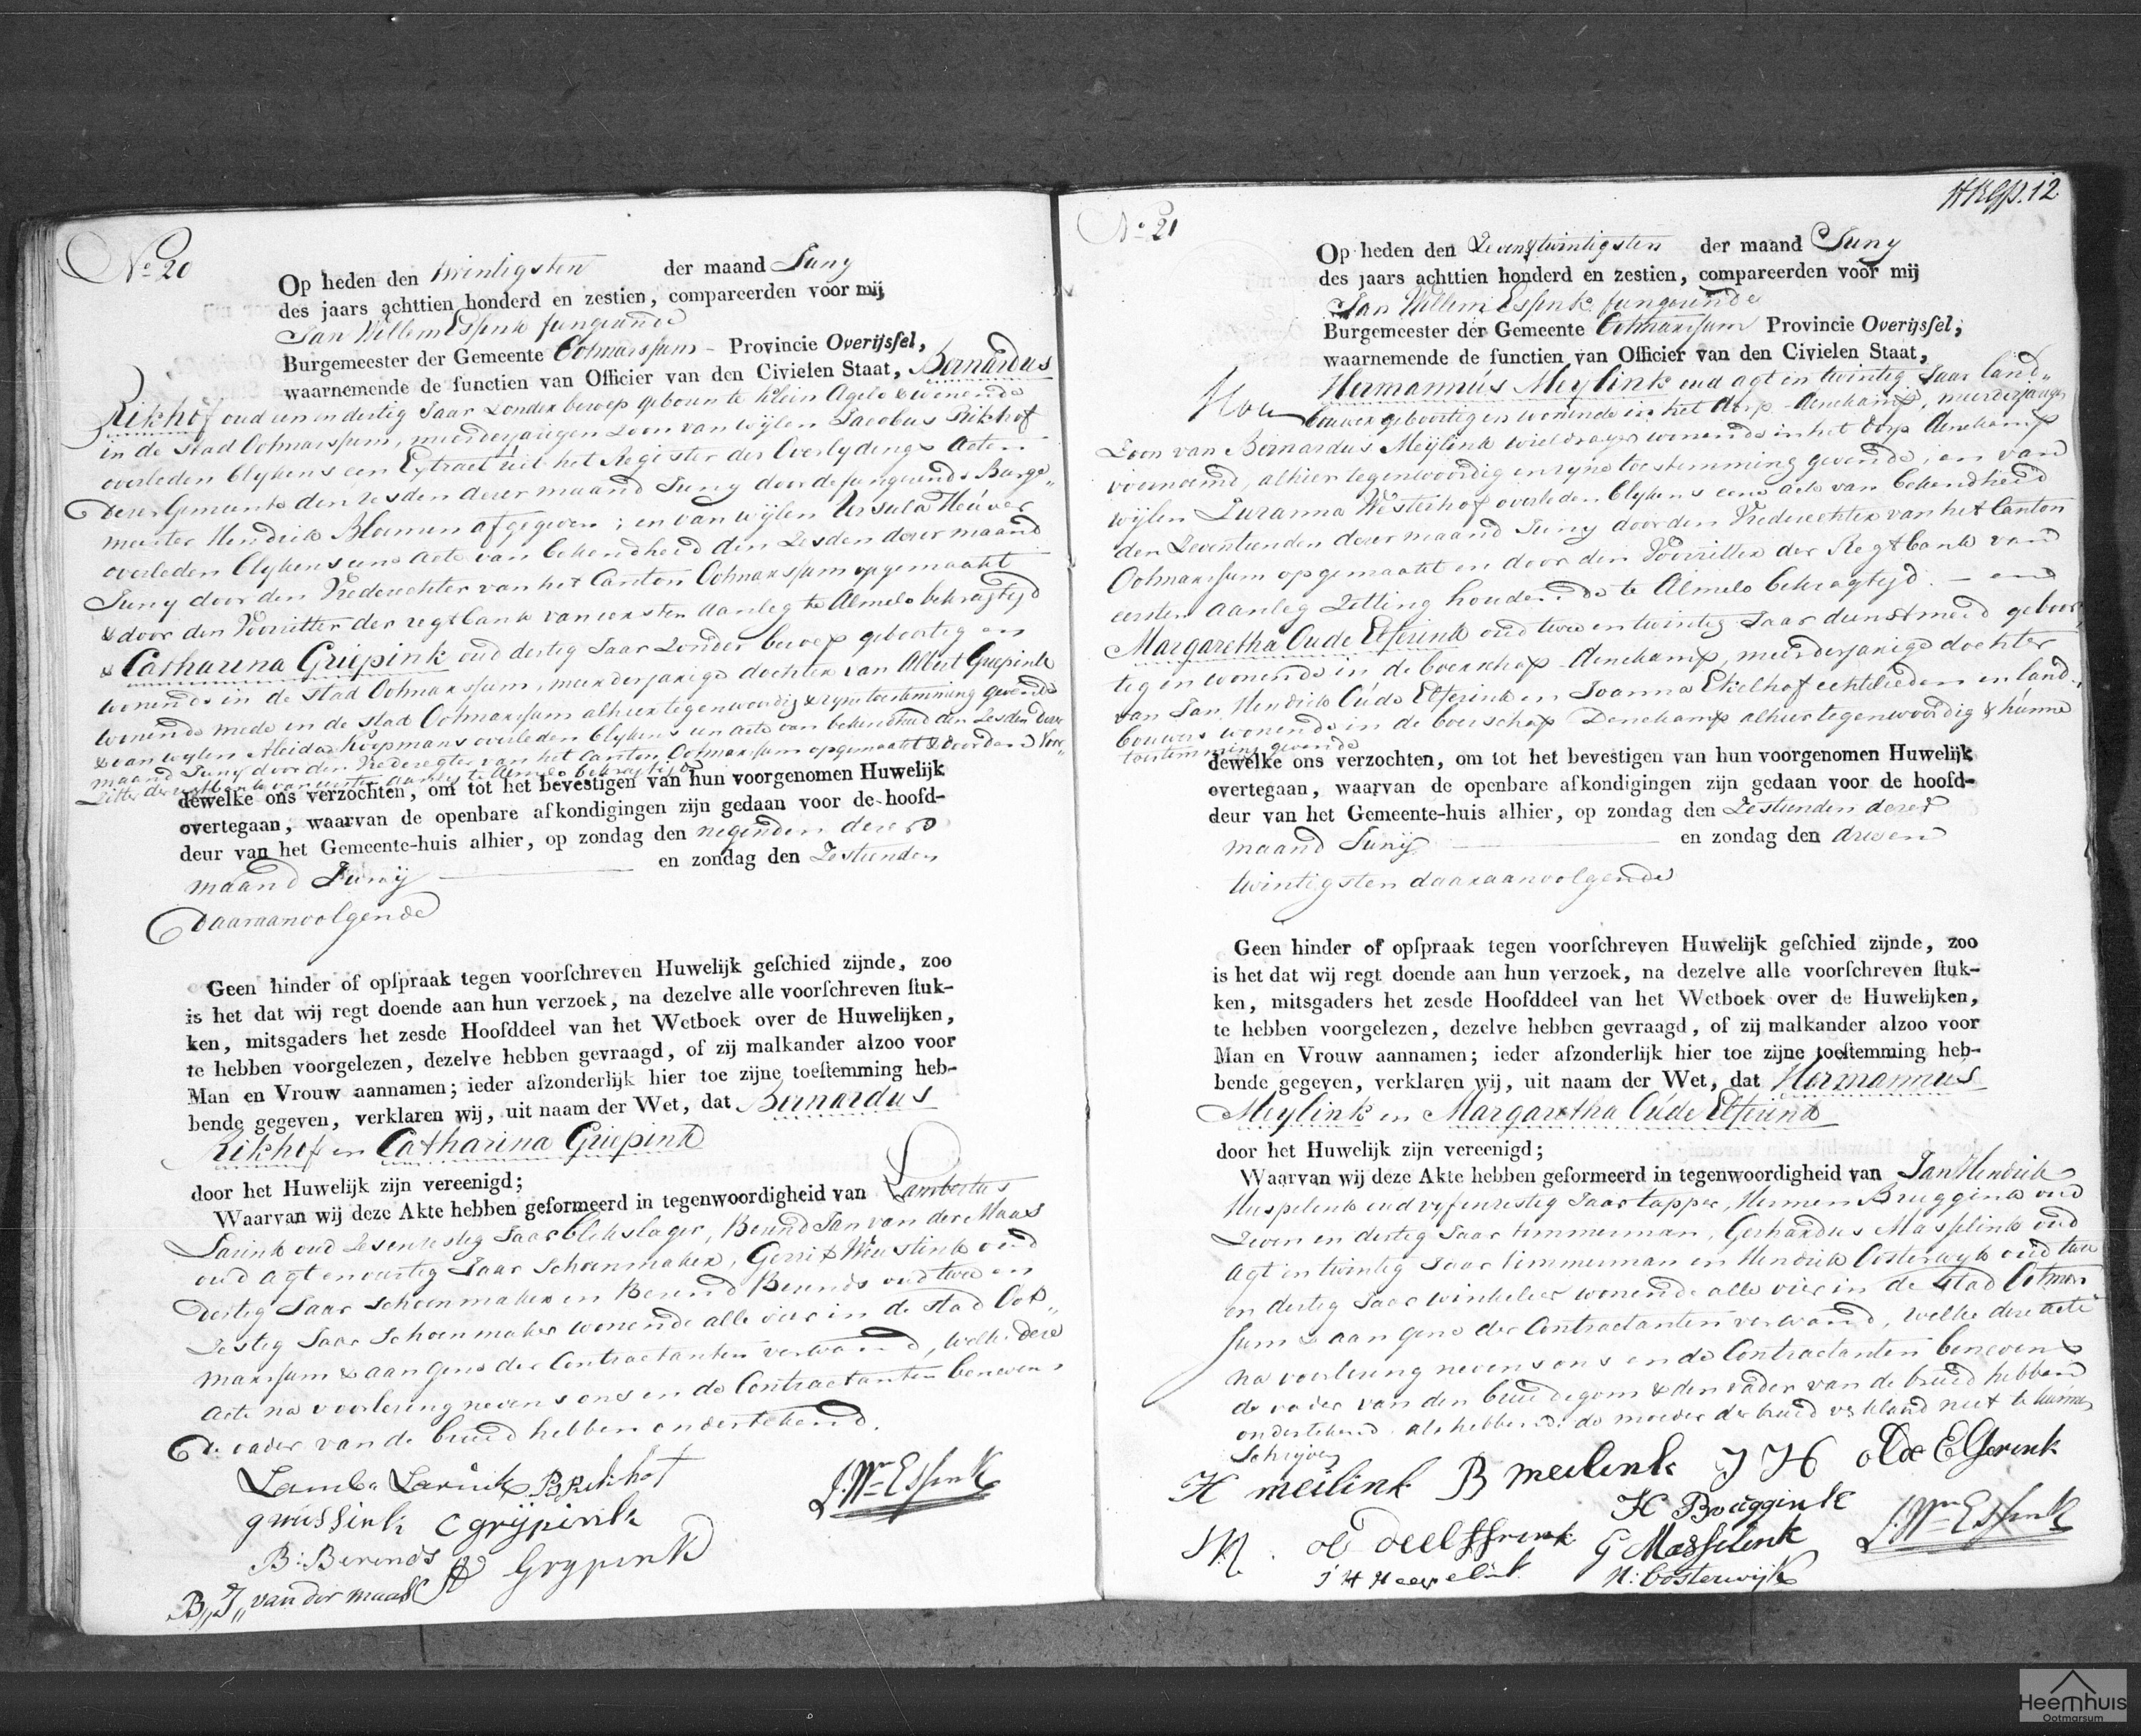 No 20
Op heden den twintigsten der maand Juny
des jaars achttien honderd en zestien, compareerden voor mij
Jan Willem Essink fungerende
Burgemeester der Gemeente Ootmarssum - Provincie Overijssel,
waarnemende de functien van Officier van den Civielen Staat, Bernardus
Rikhof oud een en dertig Jaar zonder beroep geboren te Klein Agelo & wonende
in de stad Ootmarssum, meerderjarigen zoon van wijlen Jacobus Rikhof
overleden blykens een Extract uit het Register der Overlydings Acten
dezer Gemeente den zesden dezer maand Juny door de fungerende Burge„
meester Hendrik Bloemen afgegeven; en van wijlen Ursula Heuver
overleden blykens eene acte van bekendheid den zesden dezer maand
Juny door den Vrederechter van het Canton Ootmarssum opgemaakt
& door den Voorzitter der regtbank van eersten Aanleg te Almelo bekragtigd
& Catharina Griepink oud dertig Jaar zonder beroep geboortig en
wonende in de stad Ootmarssum, meerderjarige dochter van Albert Griepink
wonende mede in de stad Ootmarssum alhier tegenwoordig & zyne toestemming gevende
& van wylen Aleida Koopmans overleden blykens een acte van bekendheid den zesden dezer
maand Juny door den Vrederegter van het Canton Ootmarssum opgemaakt & door den Voor„
zitter der regtbank van eersten aanleg te Almelo bekragtigd
dewelke ons verzochten, om tot het bevestigen van hun voorgenomen Huwelijk
overtegaan, waarvan de openbare afkondigingen zijn gedaan voor de hoofd-
deur van het Gemeente-huis alhier, op zondag den negenden dezer
maand Junij en zondag den zestienden
daaraanvolgende
Geen hinder of opſpraak tegen voorſchreven Huwelijk geſchied zijnde, zoo
is het dat wij regt doende aan hun verzoek, na dezelve alle voorſchreven ſtuk-
ken, mitsgaders het zesde Hoofddeel van het Wetboek over de Huwelijken,
te hebben voorgelezen, dezelve hebben gevraagd, of zij malkander alzoo voor
Man en Vrouw aannamen; ieder afzonderlijk hier toe zijne toeſtemming heb-
bende gegeven, verklaren wij, uit naam der Wet, dat Bernardus
Rikhof en Catharina Griepink
door het Huwelijk zijn vereenigd;
Waarvan wij deze Akte hebben geformeerd in tegenwoordigheid van Lambertus
Larink oud zesenzestig Jaar blekslager, Berend Jan van der Maas
oud agt en veertig Jaar schoenmaker, Gerrit Weustink oud
dertig Jaar schoenmaker en Berend Berends oud twee en
zestig Jaar schoenmaker wonende alle vier in de stad Oot„
marssum & aan geene der Contractanten verwand, welke deze
acte na voorlezing nevens ons en de Contractanten benevens
de vader van de bruid hebben ondertekend.
Lamb. Larink B Rikhof
J. Wm Essink
g wissink C grijpink
B: Berends A Grypink
B„ J„ van der maas
HRGp. 12
No 21
Op heden den Zevenentwintigsten der maand Juny
des jaars achttien honderd en zestien, compareerden voor mij
Jan Willem Essink fungerende
Burgemeester der Gemeente Ootmarssum Provincie Overijssel;
waarnemende de functien van Officier van den Civielen Staat,
Hermannus Meylink oud agt en twintig Jaar land„
bouwer geboortig en wonende in het dorp Denekamp, meerderjarigen
Zoon van Bernardus Meylink wieldrayer wonende in het dorp Denekamp
voornoemd, alhier tegenwoordig en zyne toestemming gevende, en van
wijlen Zuzanna Westerhof overleden blykens eene acte van bekendheid
den zeventienden dezer maand Juny door den Vrederechter van het Canton
Ootmarssum opgemaakt en door den Voorzitter der Regtbank van
eersten aanleg zitting houdende te Almelo bekragtigd. - en
Margaretha Oude Elferink oud twee en twintig Jaar dienstmeid geboor„
tig en wonende in de boerschap Denekamp, meerderjarige dochter
van Jan Hendrik Oude Elferink en Joanna Ekelhof echtelieden en land„
bouwers wonende in de boerschap Denekamp alhier tegenwoordig & hunne
toestemming gevende
dewelke ons verzochten, om tot het bevestigen van hun voorgenomen Huwelijk
overtegaan, waarvan de openbare afkondigingen zijn gedaan voor de hoofd-
deur van het Gemeente-huis alhier, op zondag den Zestienden dezer
maand Junij en zondag den drieen
twintigsten daaraanvolgende
Geen hinder of opſpraak tegen voorſchreven Huwelijk geſchied zijnde, zoo
is het dat wij regt doende aan hun verzoek, na dezelve alle voorſchreven ſtuk-
ken, mitsgaders het zesde Hoofddeel van het Wetboek over de Huwelijken,
te hebben voorgelezen, dezelve hebben gevraagd, of zij malkander alzoo voor
Man en Vrouw aannamen; ieder afzonderlijk hier toe zijne toeſtemming heb-
bende gegeven, verklaren wij, uit naam der Wet, dat Hermannus
Meylink en Margaretha Oude Elferink
door het Huwelijk zijn vereenigd;
Waarvan wij deze Akte hebben geformeerd in tegenwoordigheid van Jan Hendrik
Huspelink oud vyfenzestig Jaar tapper, Hermen Bruggink oud
Zeven en dertig Jaar timmerman, Gerhardus Masselink oud
agt en twintig Jaar timmerman en Hendrik Oosterwyk oud twee
en dertig Jaar winkelier wonende alle vier in de stad Ootmar
sum & aan gene der Contractanten verwand, welke deze acte
na voorlezing nevens ons en de Contractanten benevens
de vader van den bruidegom & den vader van de bruid hebben
ondertekend. als hebbende de moeder der bruid verklaard niet te kunnen
schryven
H meilink B meilink J H olde Elferink
H Bruggink
J. Wm Essink
M. ol deelfferink G Masselink
J H Heuspelink H: Oosterwijk
Heemhuis
Ootmarsum